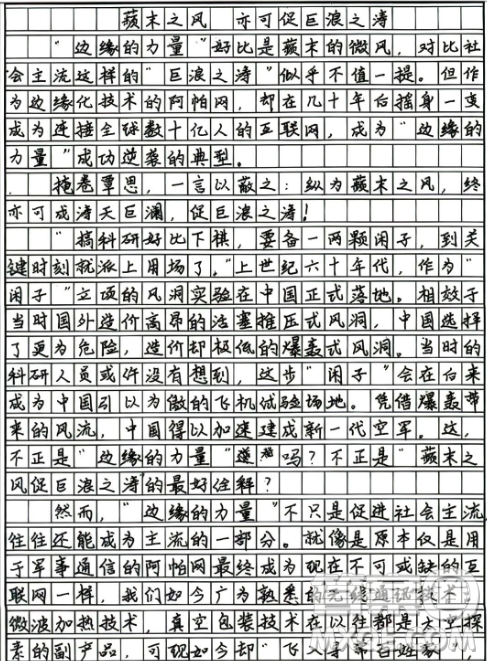 蘋末之风 亦可促巨浪之涛
"边缘的力量"好比是蘋末的微风，对比社
会主流这样的"巨浪之涛"似乎不值一提。但作
为边缘化技术的阿帕网，却在几十年后摇身一变
成为连接全球数十亿人的互联网，成为"边缘的
力量"成功逆袭的典型。
掩卷覃思，一言以蔽之：纵为蘋末之风，终
亦可成涛天巨澜，促巨浪之涛！
"搞科研好比下棋，要备一两颗闲子，到关
键时刻就派上用场了。"上世纪六十年代，作为"
闲子"立项的风洞实验在中国正式落地。相较于
当时国外造价高昂的活塞推压式风洞，中国选择
了更为危险，造价却极低的爆轰式风洞。当时的
科研人员或许没有想到，这步"闲子"会在后来
成为中国引以为傲的飞机试验场地。凭借爆轰带
来的风流，中国得以加速建成新一代空军。这，
不正是"边缘的力量"吗？不正是"蘋末之
风促巨浪之涛"的最好诠释？
然而，"边缘的力量"不只是促进社会主流，
往往还能成为主流的一部分。就像是原本仅是用
于军事通信的阿帕网最终成为现在不可或缺的互
联网一样，我们如今广为熟悉的无线通讯技术，
微波加热技术，真空包装技术在以往都是太空探
索的副产品，可现如今却"飞入寻常百姓家"，